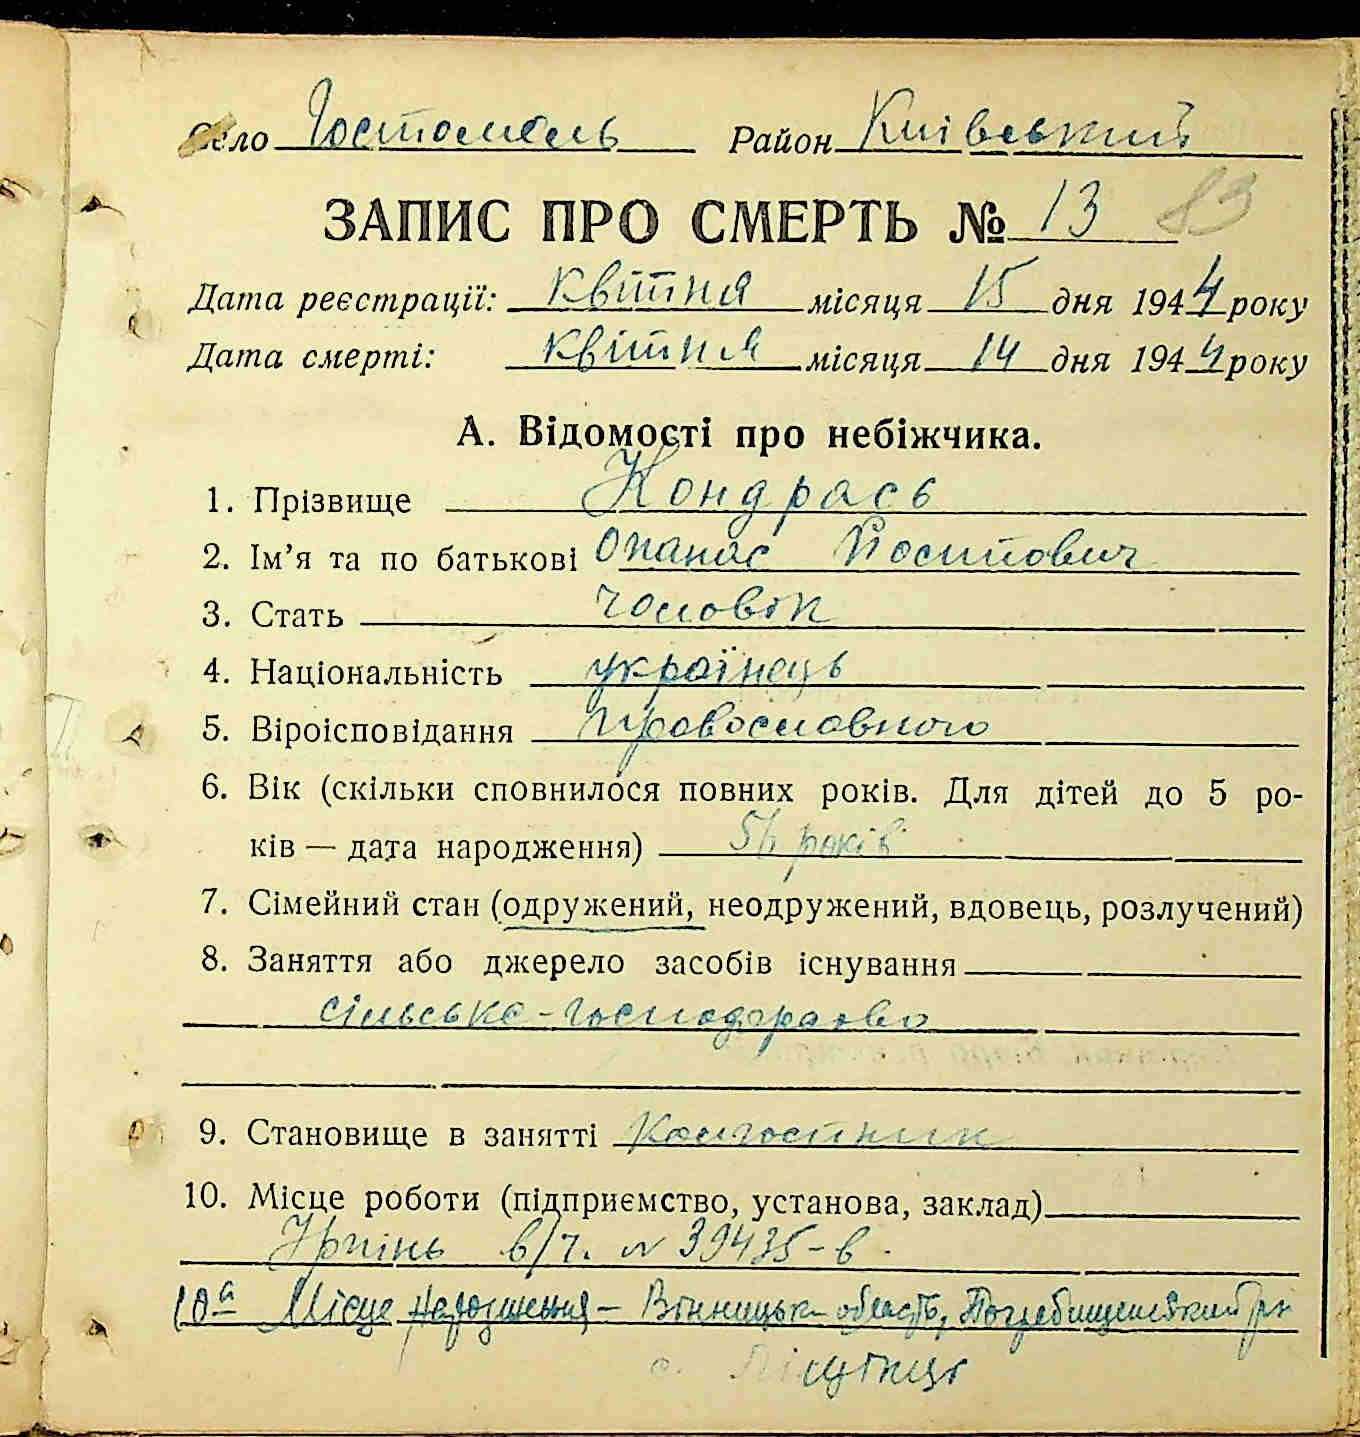 Село Гостомель Район Київський
ЗАПИС ПРО СМЕРТЬ № 13 83
Дата реєстрації: квітня місяця 15 дня 1944 року
Дата смерті: квітня місяця 14 дня 1944 року
А. Відомості про небіжчика.
1. Прізвище Кондрась
2. Ім'я та по батькові Опанас Йосипович
3. Стать чоловік
4. Національність українець
5. Віроісповідання православного
6. Вік (скільки сповнилося повних років. Для дітей до 5 ро-
ків — дата народження) 56 років
7. Сімейний стан (одружений, неодружений, вдовець, розлучений)
8. Заняття або джерело засобів існування
сільсько-господарово
9. Становище в занятті колгоспник
10. Місце роботи (підприємство, установа, заклад)
Ірпінь в/ч. N 39435-в.
10а Місце народження – Вінницьк область, Погребищенський рн
с.